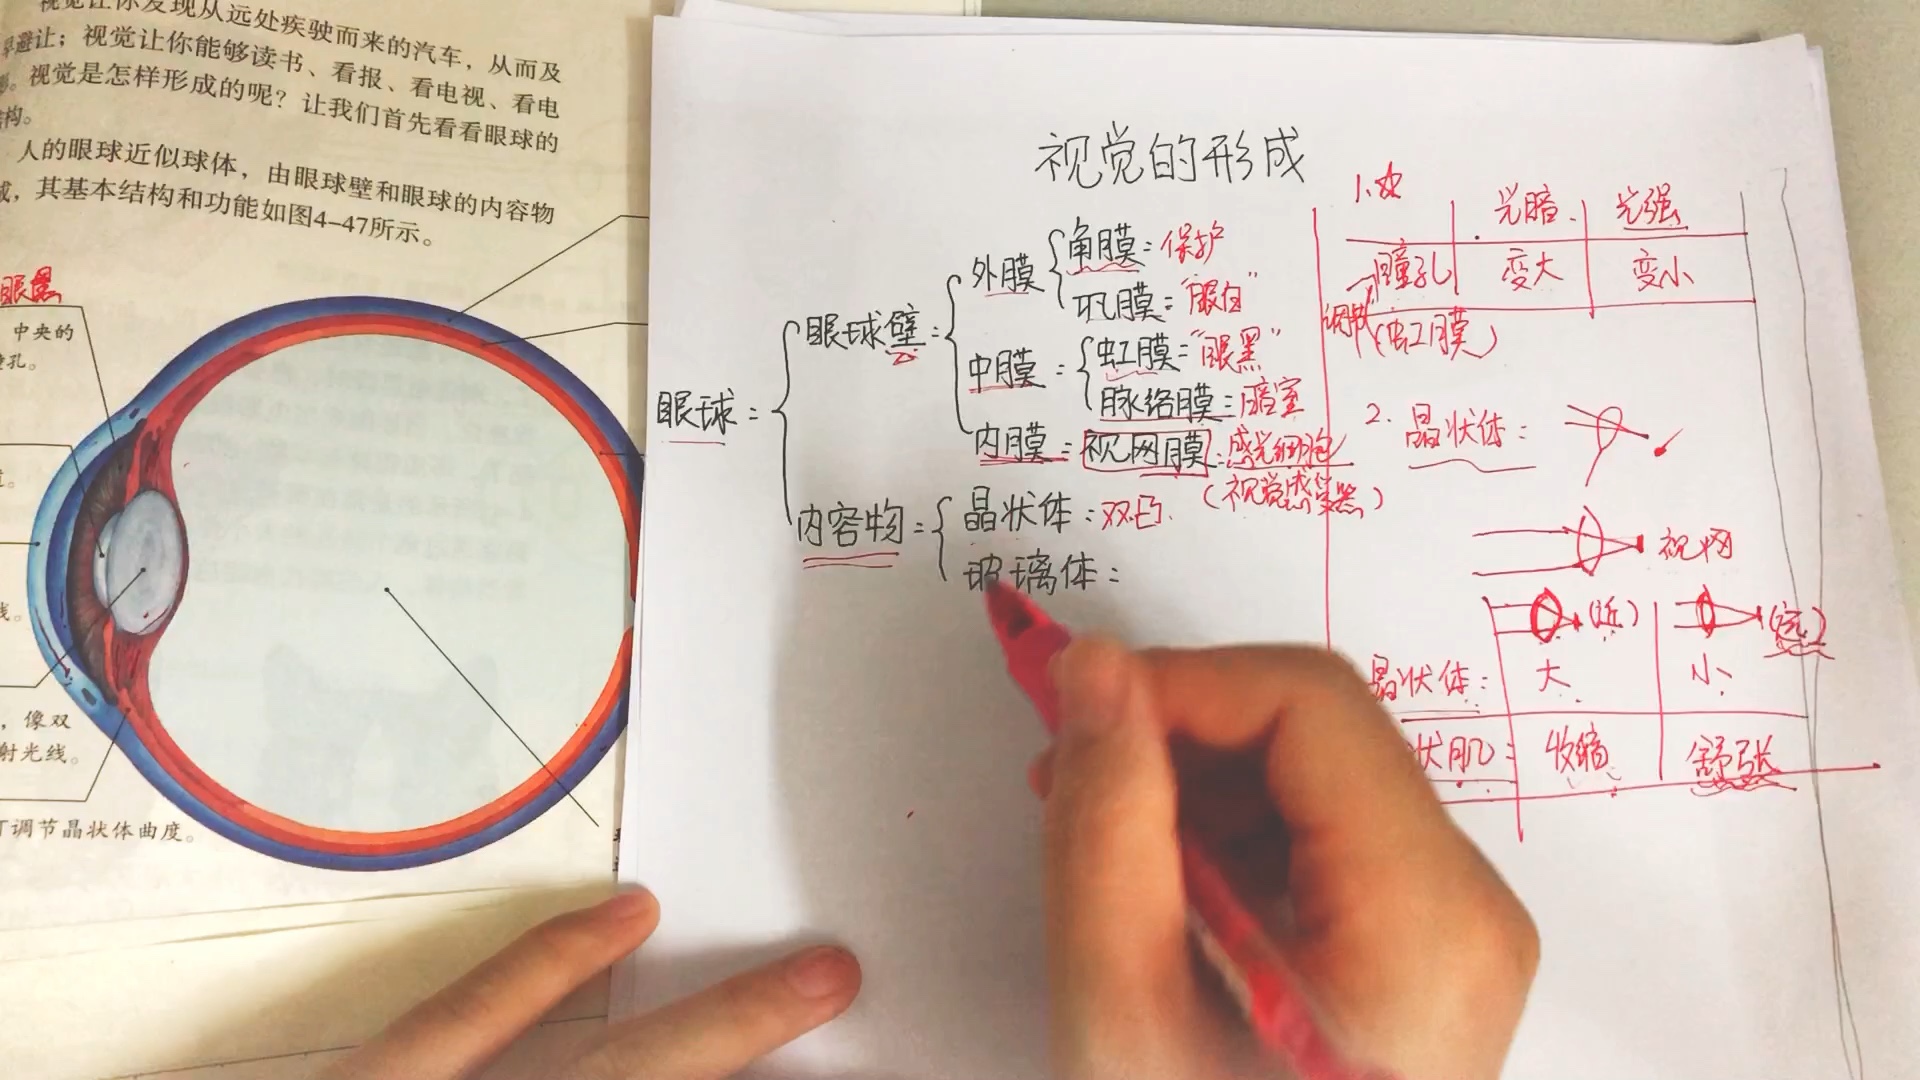 视觉让你发现从远处疾驶而来的汽车，从而及
早避让；视觉让你能够读书、看报、看电视、看电
视觉是怎样形成的呢？让我们首先看看眼球的
构。
人的眼球近似球体，由眼球壁和眼球的内容物
成，其基本结构和功能如图4-47所示。
眼黑
中央的
孔。
线。
，像双
射光线。
调节晶状体曲度。
视觉的形成
眼球=
眼球壁=
外膜
角膜=保护
巩膜="眼白"
中膜：
虹膜="眼黑"
脉络膜=暗室
内膜=视网膜:感光细胞
(视觉感受器)
内容物=
晶状体:双凸.
玻璃体:
1.
光暗.
光强
瞳孔
变大
变小
调节
(虹膜)
2.晶状体:
视网
(近)
(远)
晶状体:
大
小
状肌:
收缩
舒张